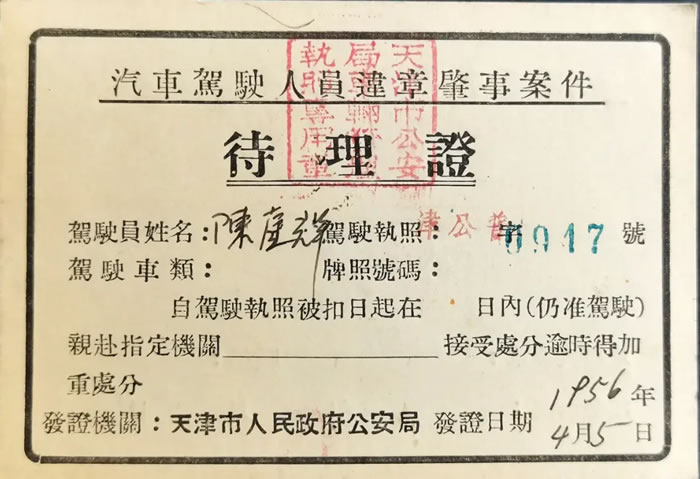 汽車駕駛人員違章肇事案件
待理證
駕駛員姓名：陳 駕駛執照：津公普字0947號
駕駛車類： 牌照號碼：
自駕駛執照被扣日起在 日內(仍准駕駛)
親赴指定機關 接受處分逾時得加
重處分
發證機關：天津市人民政府公安局 發證日期 1956年
4月5日
天津市公安
局車輛管理
執照專用章